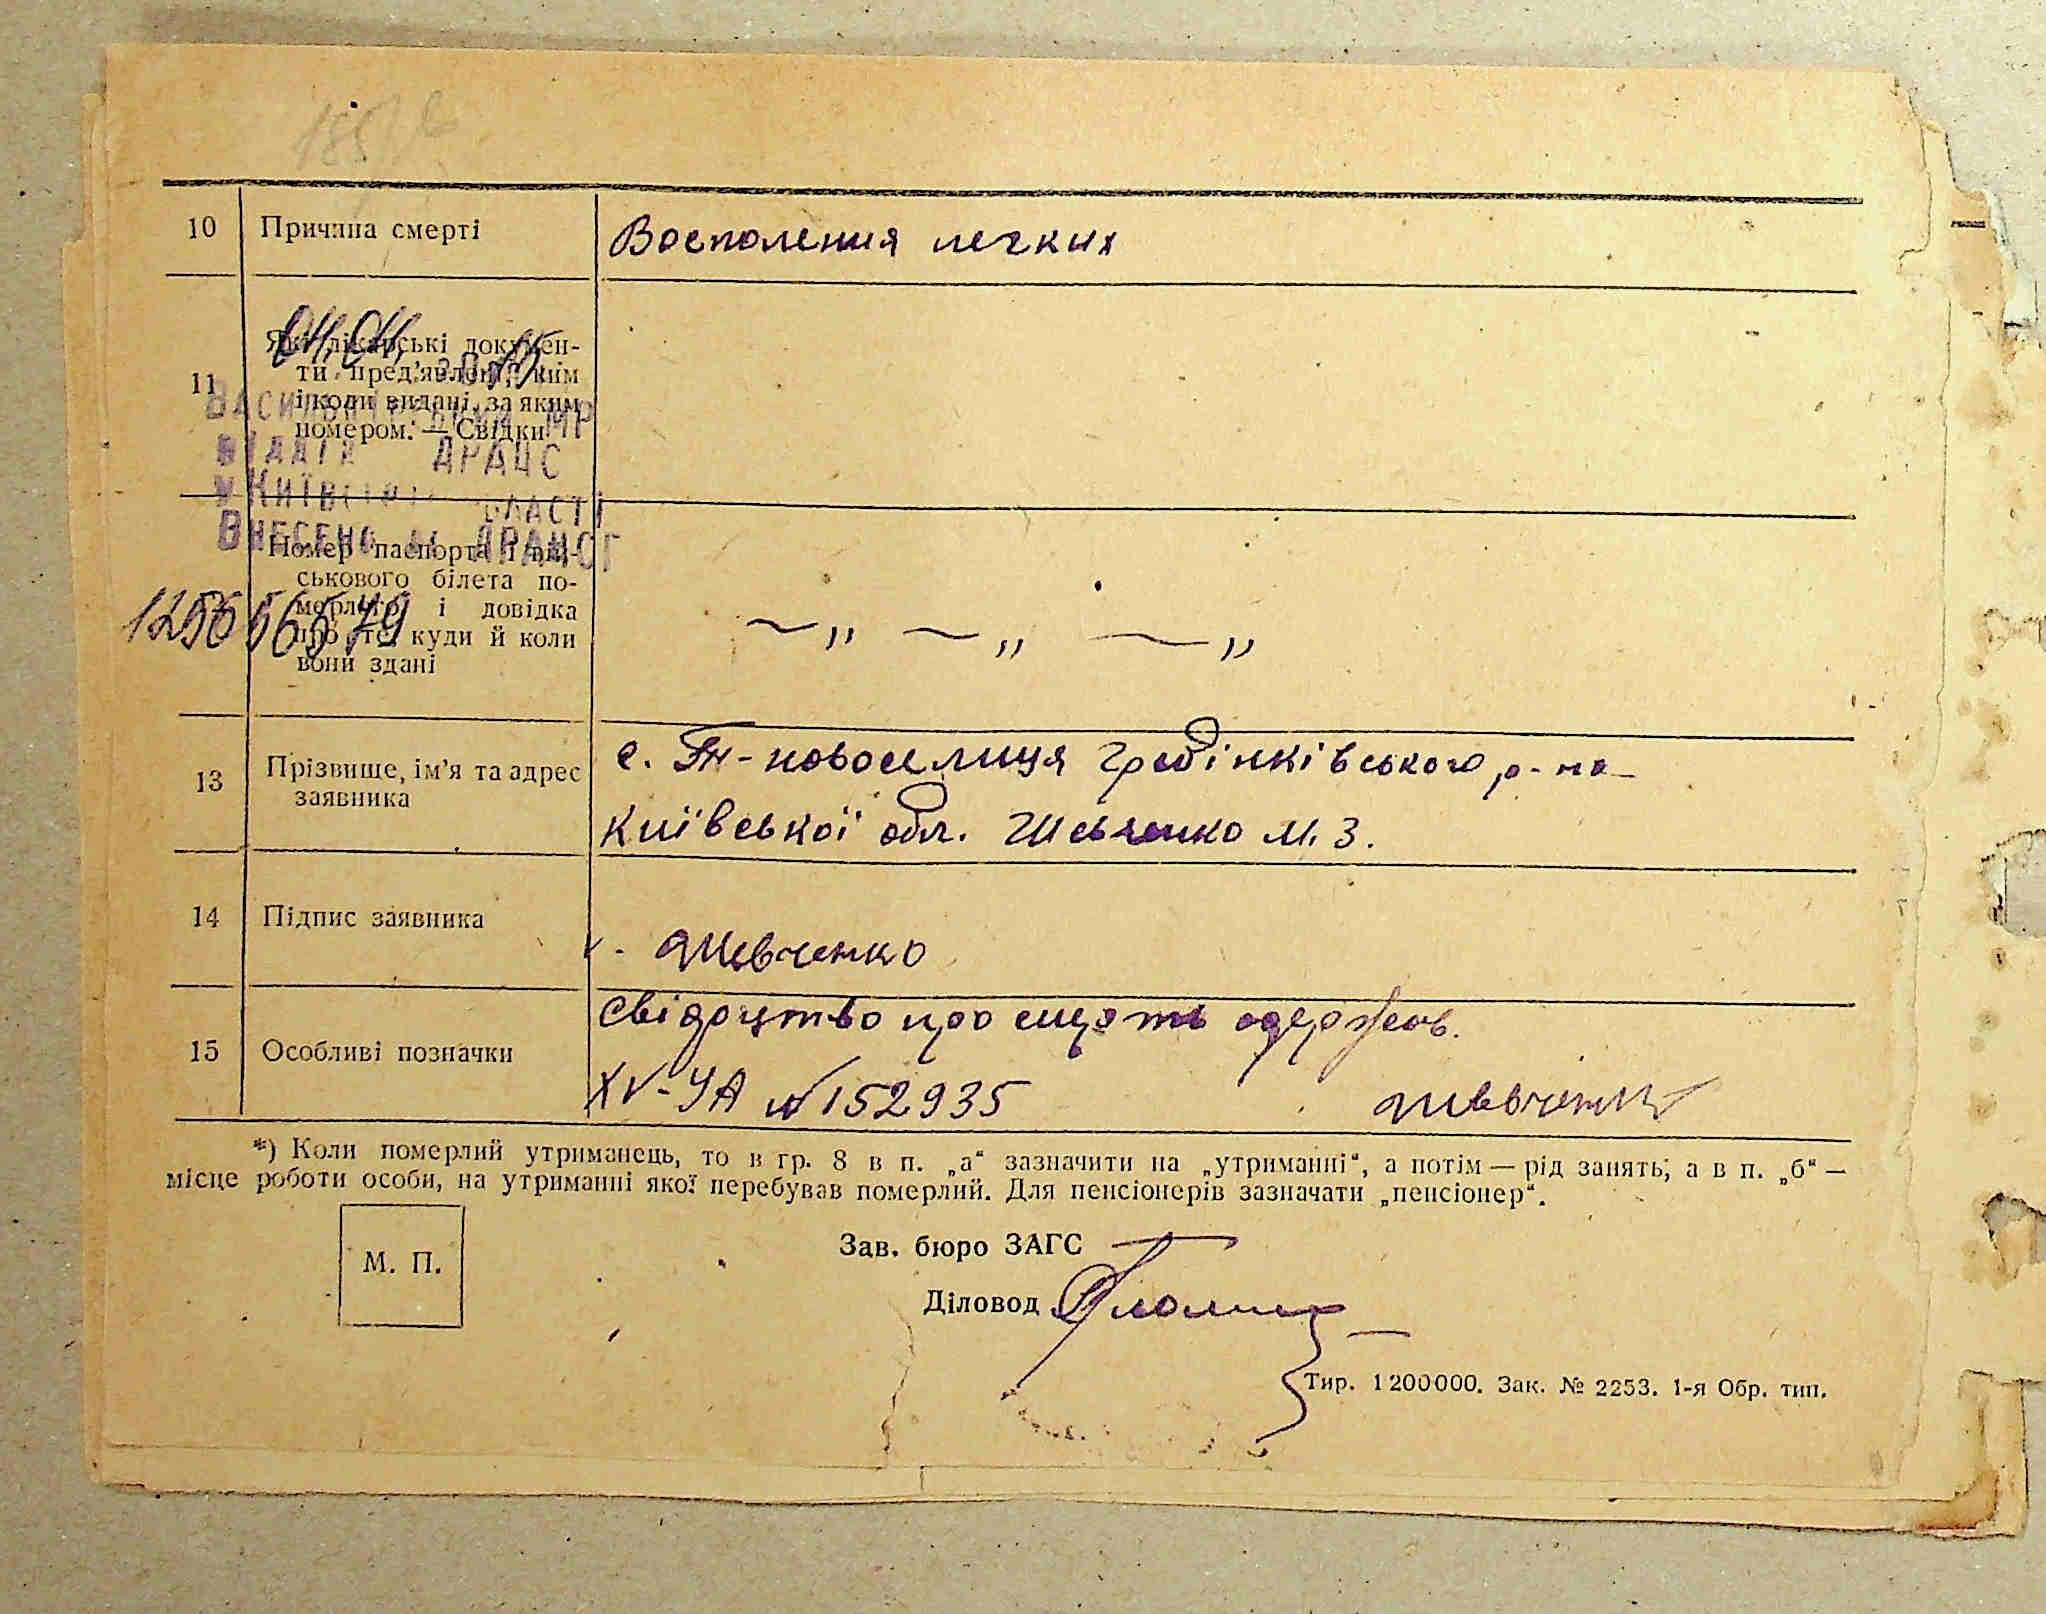 10 Причина смерті Восполения легких
11 Які лікарські докумен-
ти пред'явлені, ким
і коли видані, за яким
номером. — Свідки
ВАСИЛЬКІВСЬКИЙ МР
ВІДДІЛ ДРАЦС
У КИЇВСЬКІЙ ОБЛАСТІ
ВНЕСЕНО ДО ДРАЦСГ
Номер паспорта і вій-
ськового білета по-
мерлого і довідка
про те, куди й коли
вони здані
~ „ ~ „ — „
13 Прізвище, ім'я та адрес
заявника
с. Гн-новоселиця Гребінківського р-на
Київської обл. Шевченко М. З.
14 Підпис заявника Шевченко
15 Особливі позначки
Свідоцтво про смерть одержав.
XV-УА № 152935 Шевченко
*) Коли померлий утриманець, то в гр. 8 в п. „а“ зазначити на „утриманні“, а потім — рід занять; а в п. „б“ —
місце роботи особи, на утриманні якої перебував померлий. Для пенсіонерів зазначати „пенсіонер“.
М. П.
Зав. бюро ЗАГС
Діловод
Тир. 1200000. Зак. № 2253. 1-я Обр. тип.